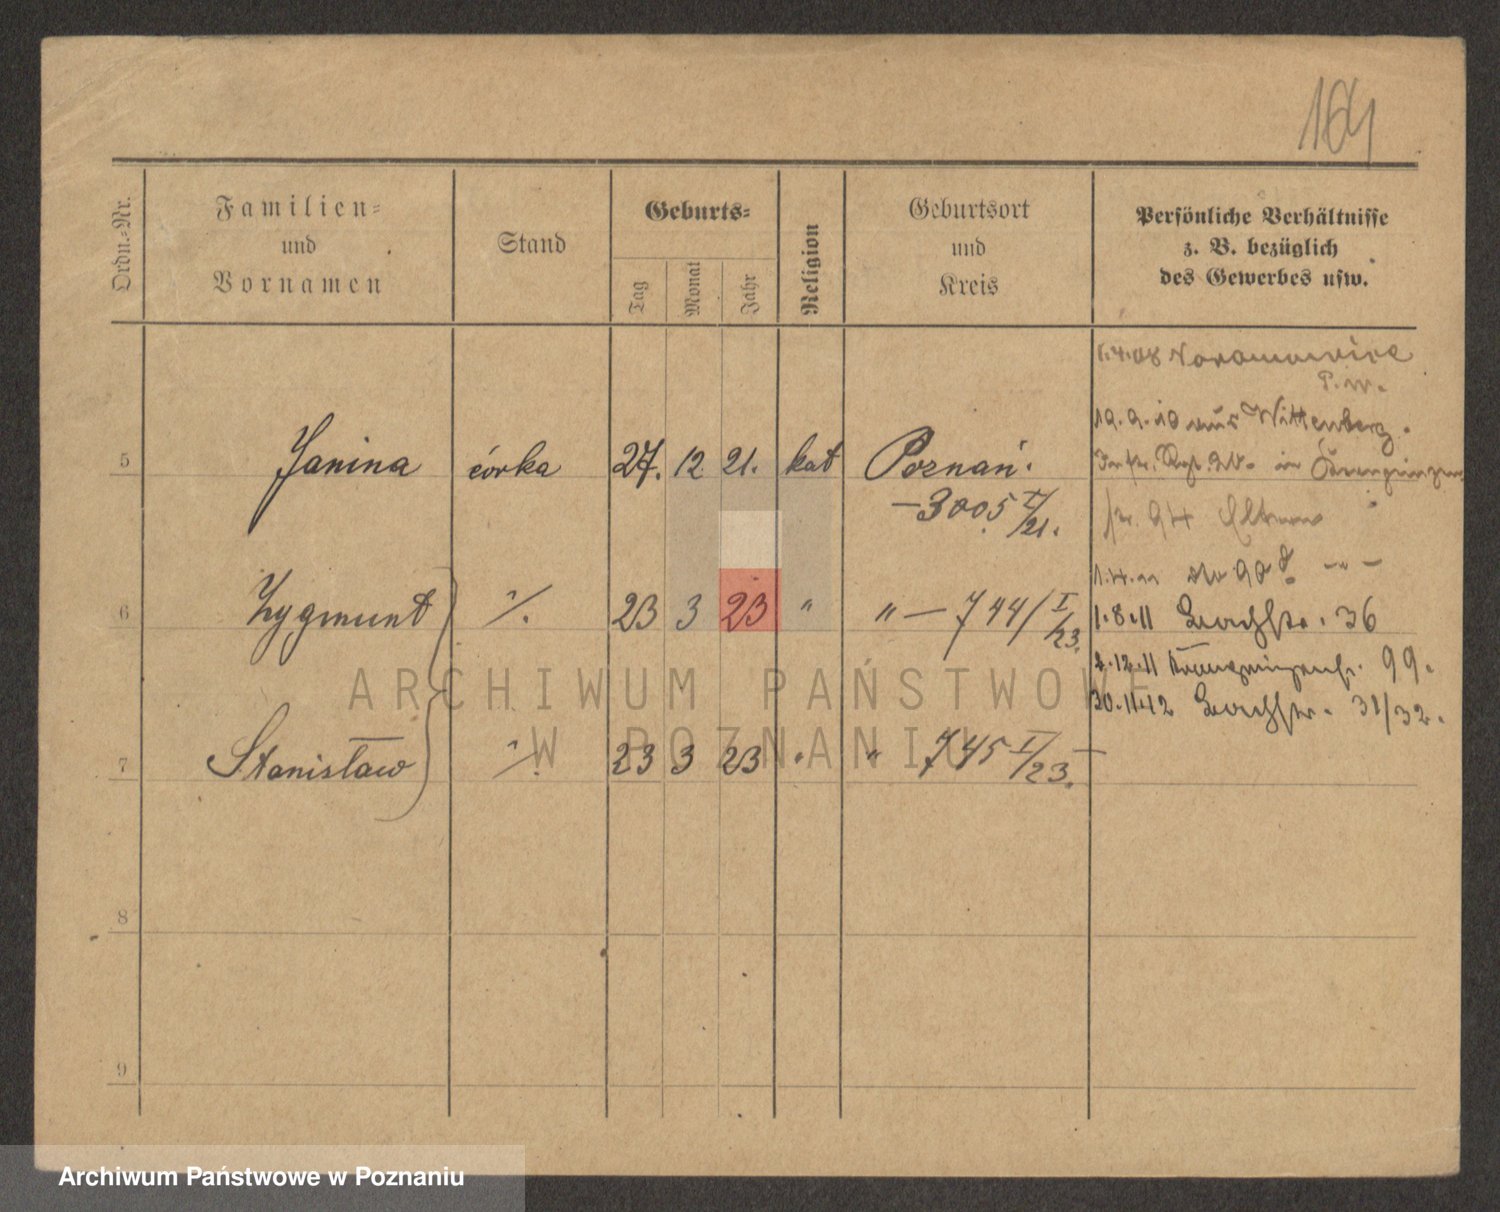 164
Ordn.-Nr.
Familien-
und
Vornamen
Stand
Geburts-
Tag
Monat
Jahr
Religion
Geburtsort
und
Kreis
Persönliche Verhältnisse
z. B. bezüglich
des Gewerbes usw.
1.4.08
P. W.
19.9.10 aus Wittenberg.
5 Janina córka 27. 12 21. kat Poznań.
— 3005 I/21.
94
6 Zygmunt ٪. 23 3 23 " " — 744/I/23.
1.8.11 Bachstr. 36
2.12.11 99.
30.11.12 Bachstr. 31/32.
ARCHIWUM PAŃSTWOWE
W POZNANIU
7 Stanisław ٪. 23 3 23 " " 745 I/23. —
8
9
Archiwum Państwowe w Poznaniu